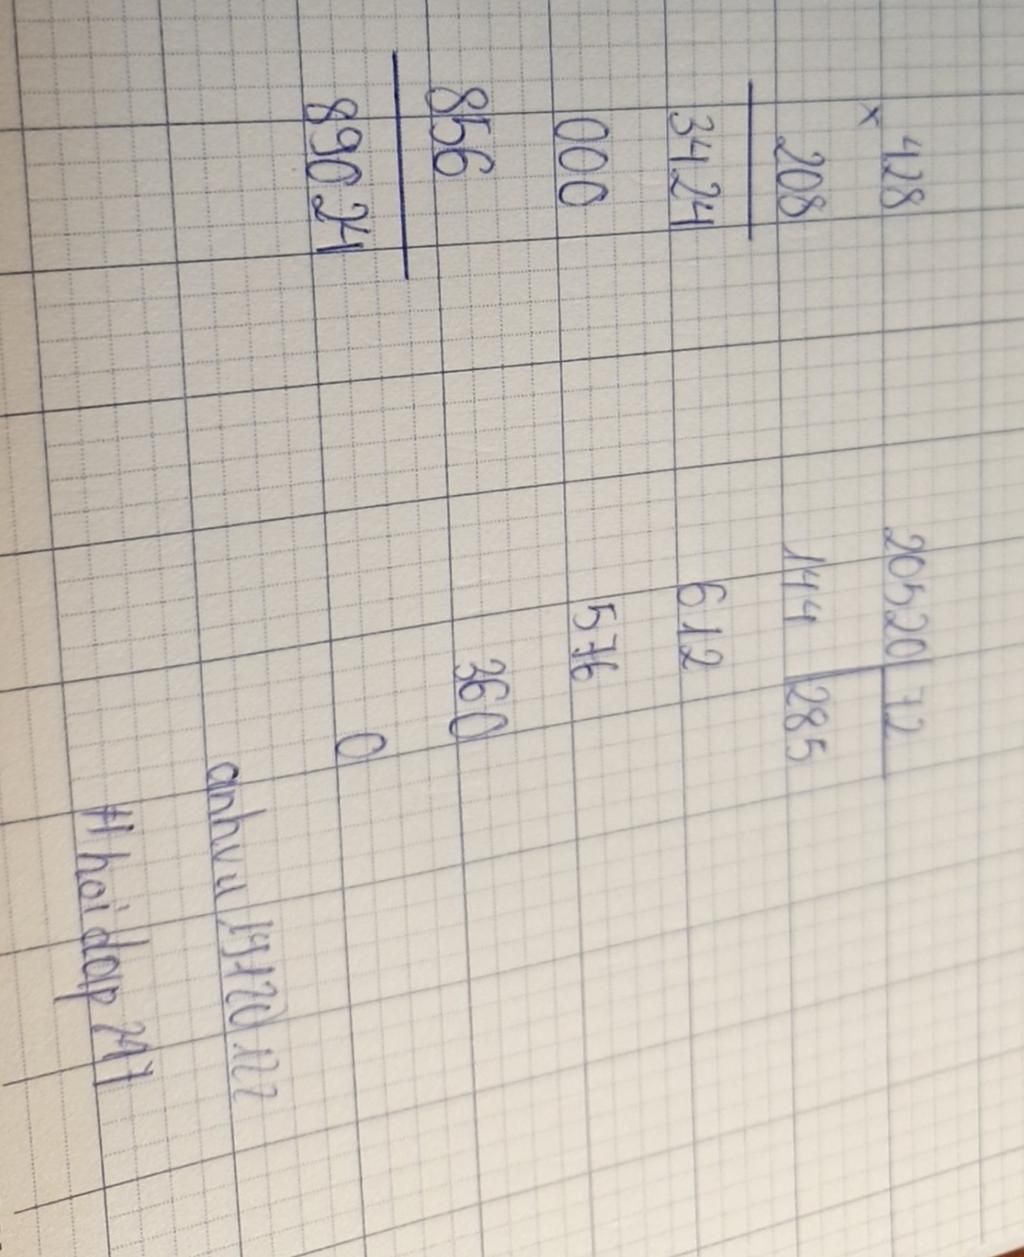 428
×
208
3424
000
856
89024
20520 72
144 285
612
576
360
0
#hoidap247